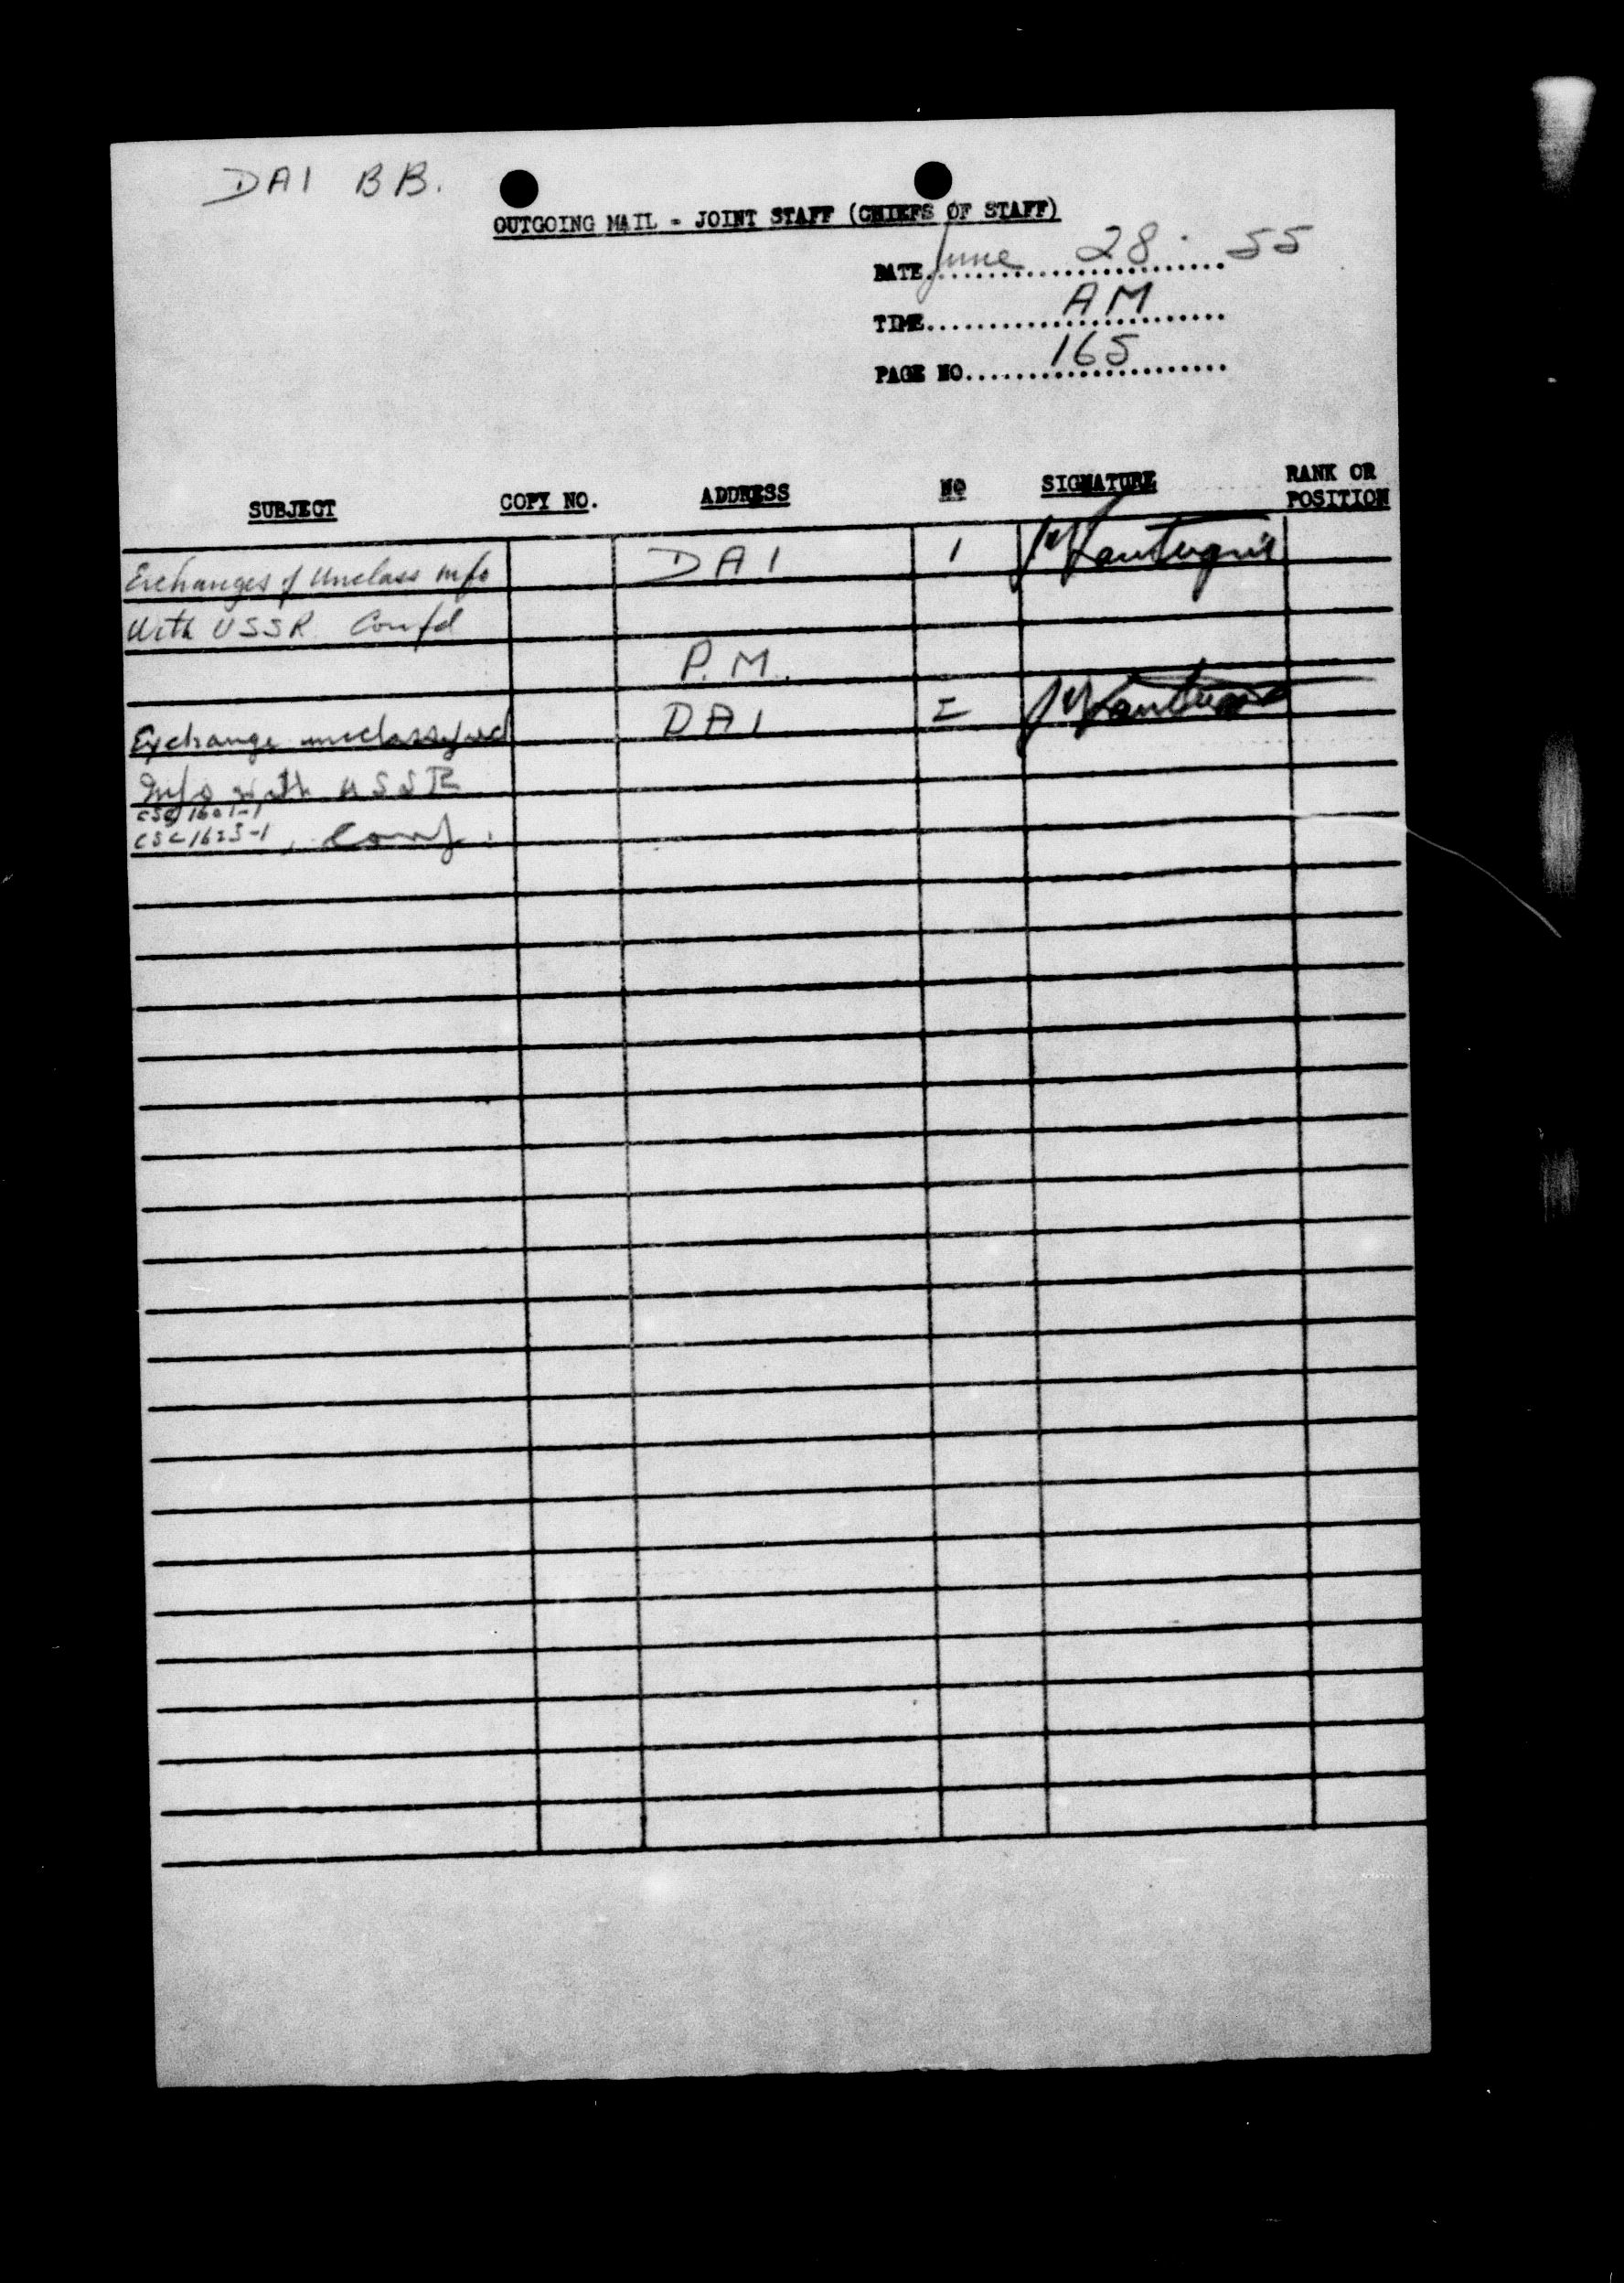 DAI BB.
OUTGOING MAIL - JOINT STAFF (CHIEFS OF STAFF)
DATE June 28. 55
TIME AM
PAGE NO 165
SUBJECT COPY NO. ADDRESS NO SIGNATURE RANK OR POSITION
Exchanges of Unclass info DAI 1
With USSR Confd
P.M.
Exchange unclassified DAI
Info with USSR
CSC 1601-1
CSC 1623-1, Conf.